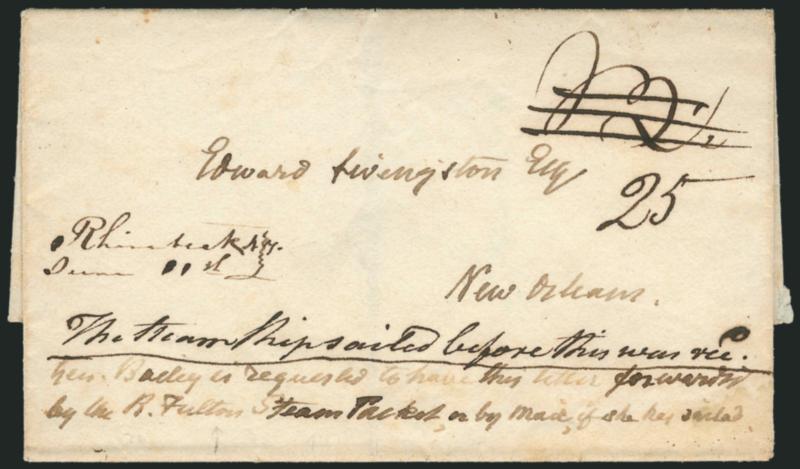 Edward Livingston Esq
25
Rhinebeck N.Y.
June 11th
New Orleans.
The Steam Ship sailed before this was rec.
Gen. Bailey is requested to have this letter forwarded
by the R. Fulton Steam Packet, or by mail, if she has sailed